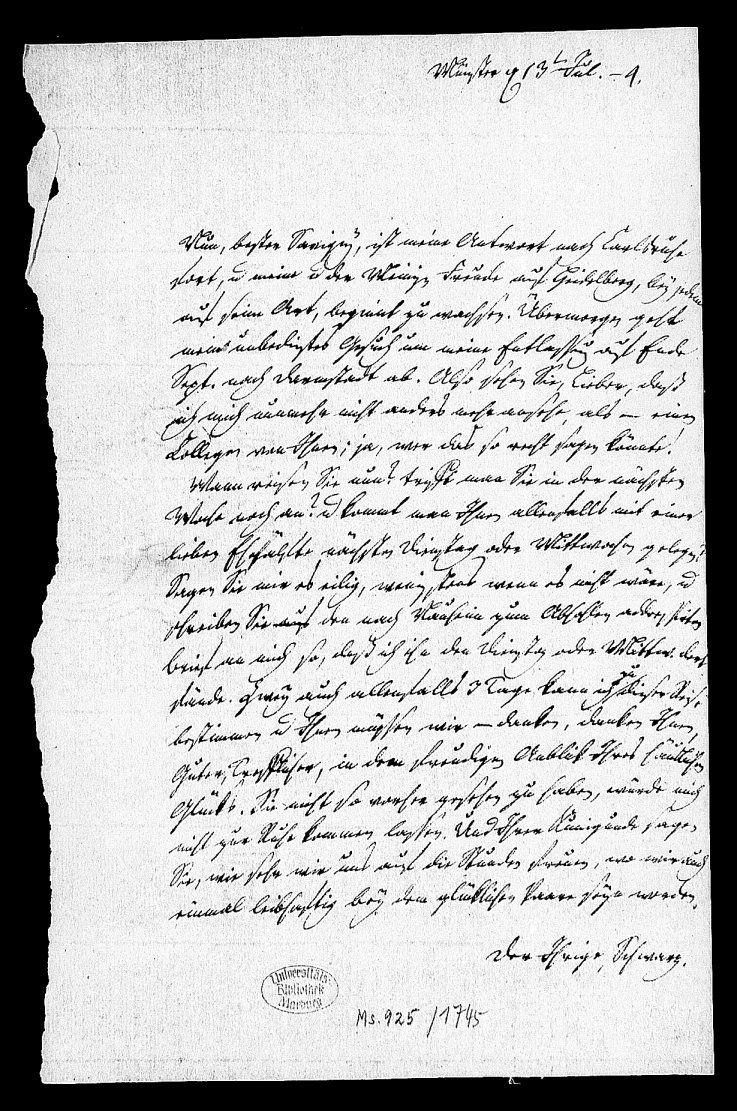 Münster d 13t Jul. –4.
Nun, bester Savigny, ist meine Antwort nach Carlsruhe
fort, u meine u der Meinigen Freude auf Heidelberg, bey jedem
auf seine Art, beginnt zu wachsen. Übermorgen geht
mein unbedingtes Gesuch um meine Entlassung auf Ende
Sept. nach Darmstadt ab. Also sehen Sie, Lieber, daß
ich mich nunmehr nicht anders mehr ansehe, als – einen
Collegen von Ihnen; ja, wer das so recht sagen könnte!
Wann reisen Sie nun? trifft man Sie in der nächsten
Woche noch an? u kommt man Ihnen allenfalls mit einer
lieben Ehehälfte nächsten Dienstag oder Mittwochen gelegen?
Sagen Sie mir es eilig, wenigstens wenn es nicht wäre, u
schreiben Sie den nach Nauheim zum Abholen addressirten
Brief an mich so, daß ich ihn den Dienstag oder Mittw. dort
fände. Zwey auch allenfalls 3 Tage kann ich zu dieser Reise
bestimmen u Ihnen müssen wir – danken, danken Ihnen,
Guter, Trefflicher, in dem freudigen Anblick Ihres häuslichen
Glücks. Sie nicht so vorher gesehen zu haben, würde mich
nicht zur Ruhe kommen lassen. Und Ihrer Kunigunde sagen
Sie, wie sehr wir uns auf die Stunden freuen, wo wir auch
einmal leibhaftig bey dem glücklichen Paare seyn werden.
Der Ihrige, Schwarz.
Universitäts-
Bibliothek
Marburg
Ms. 925/1745